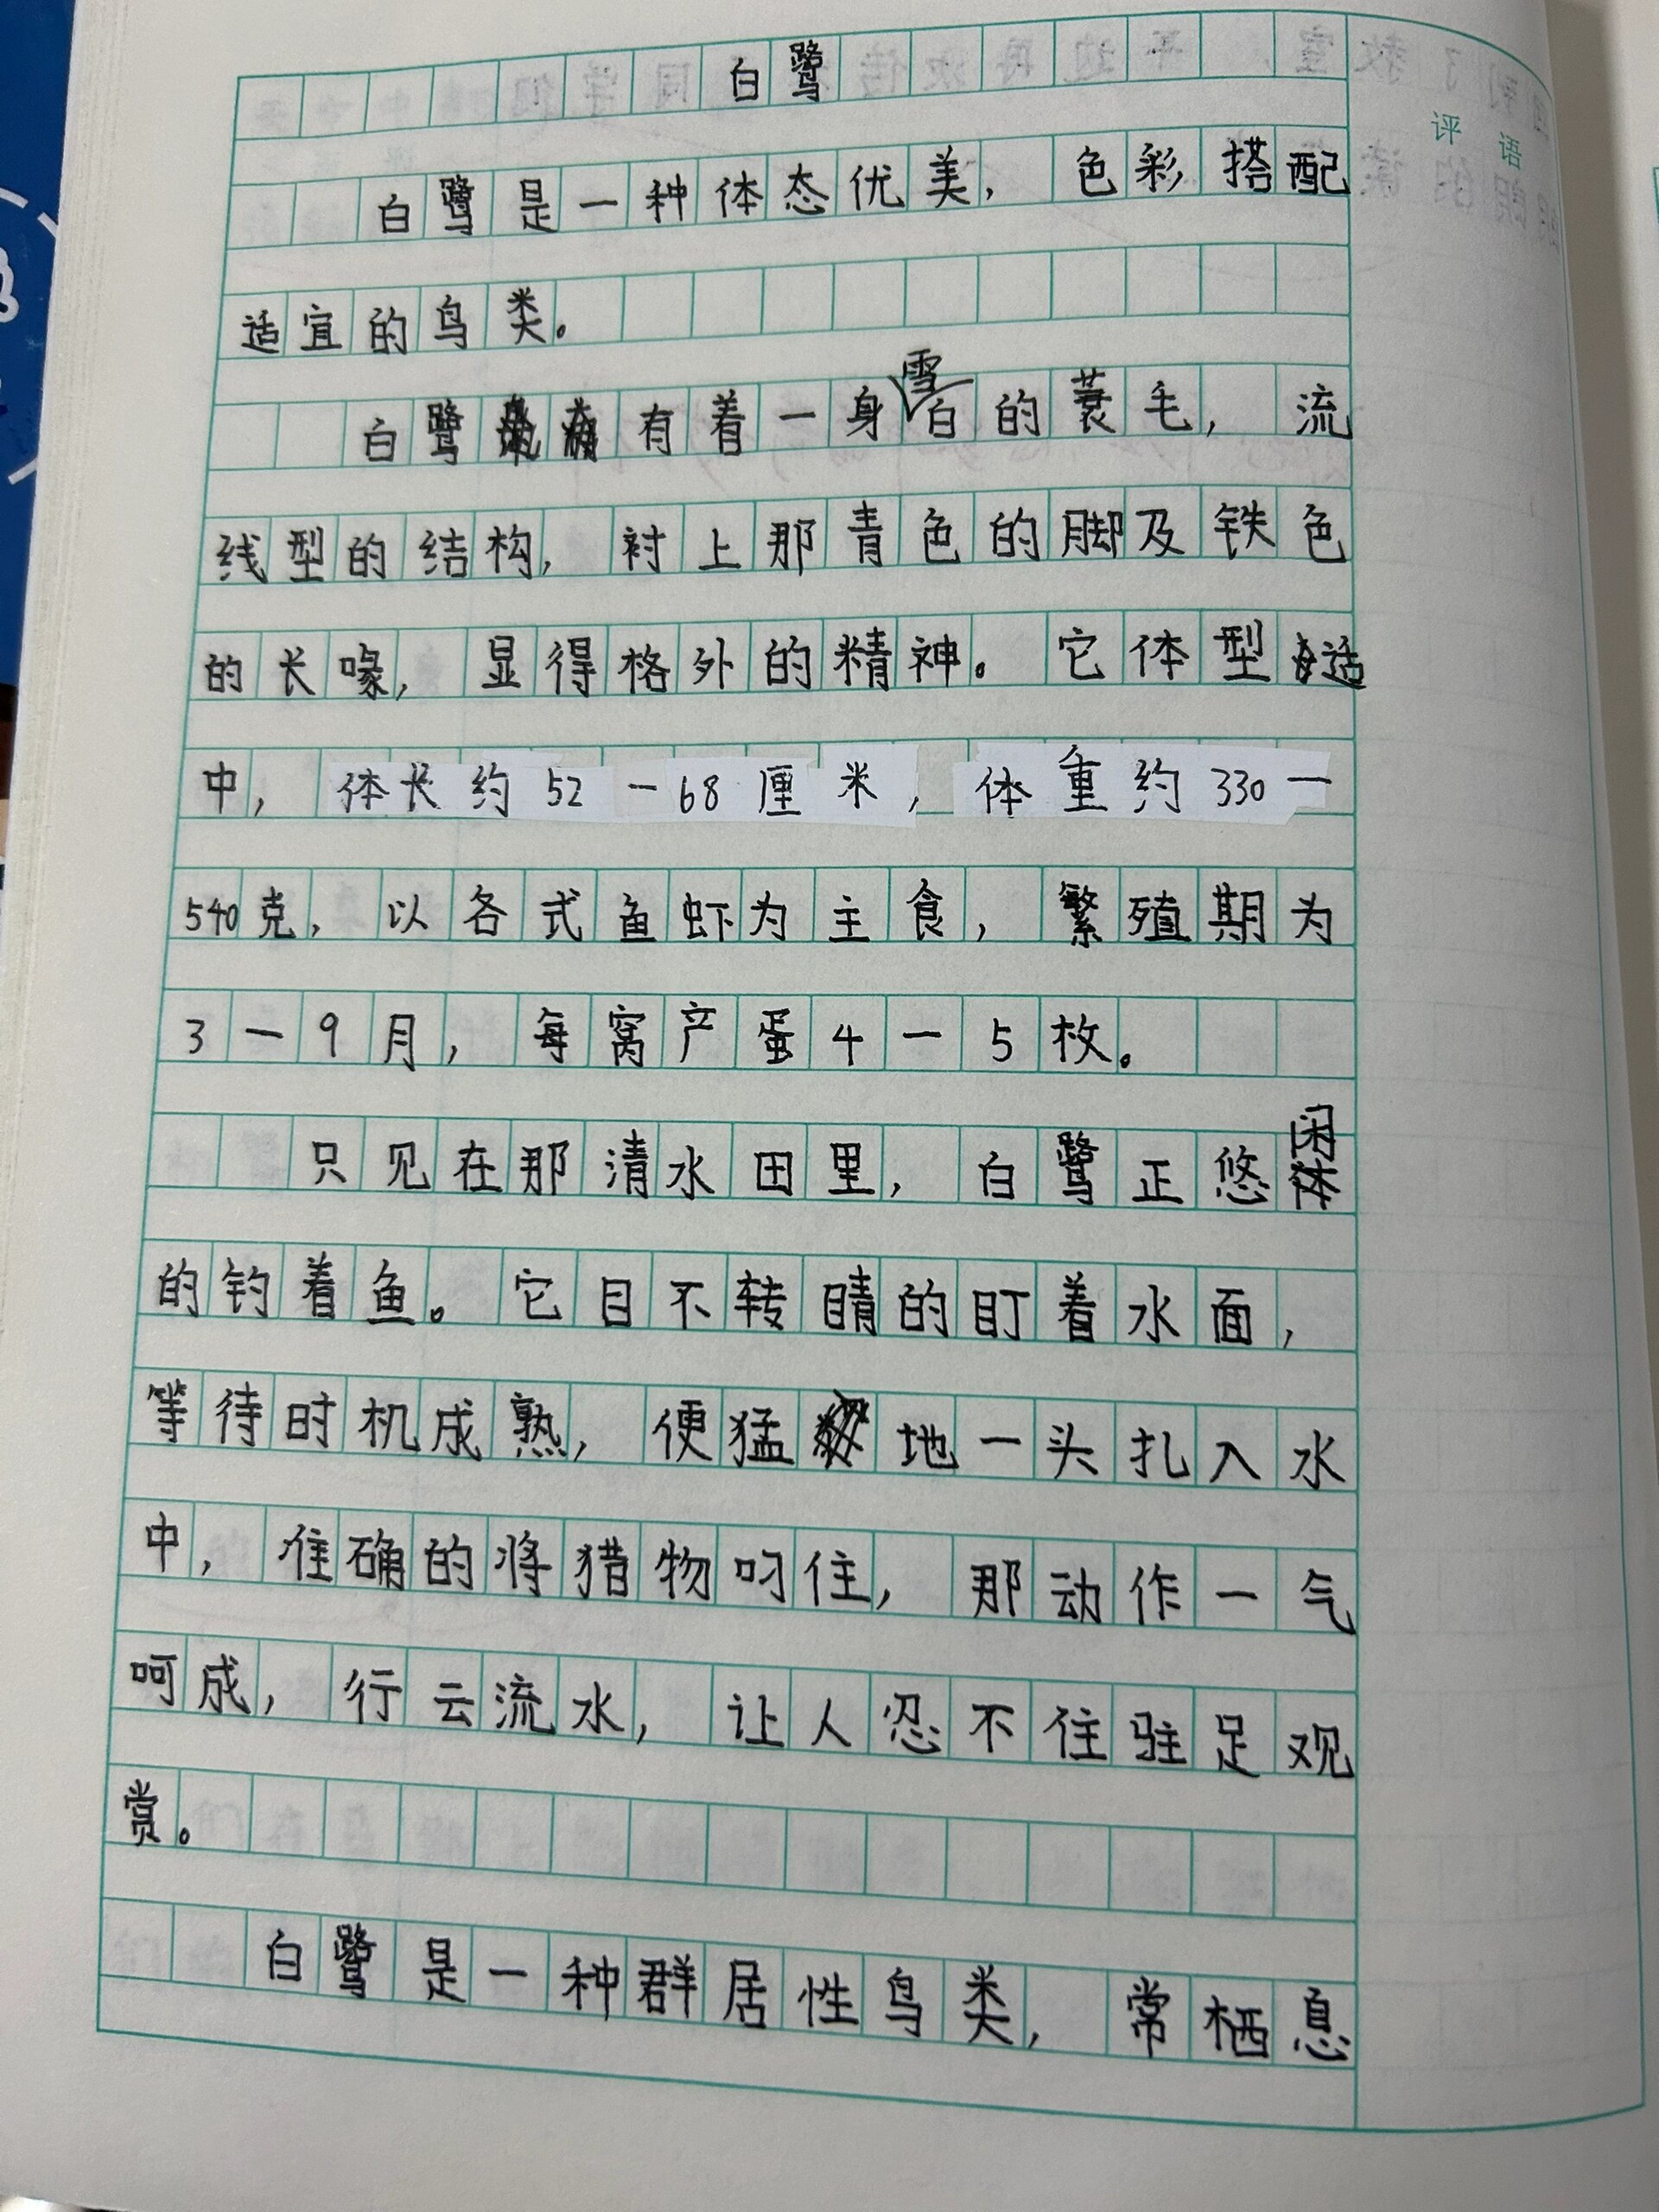 白鹭
评语
白鹭是一种体态优美，色彩搭配
适宜的鸟类。
白鹭有着一身雪白的蓑毛，流
线型的结构，衬上那青色的脚及铁色
的长喙，显得格外的精神。它体型适
中，体长约52一68厘米，体重约330一
540克，以各式鱼虾为主食，繁殖期为
3一9月，每窝产蛋4一5枚。
只见在那清水田里，白鹭正悠闲
的钓着鱼。它目不转睛的盯着水面，
等待时机成熟，便猛地一头扎入水
中，准确的将猎物叼住，那动作一气
呵成，行云流水，让人忍不住驻足观
赏。
白鹭是一种群居性鸟类，常栖息